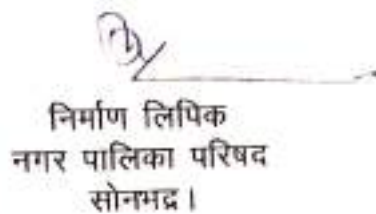 निर्माण लिपिक
नगर पालिका परिषद
सोनभद्र।